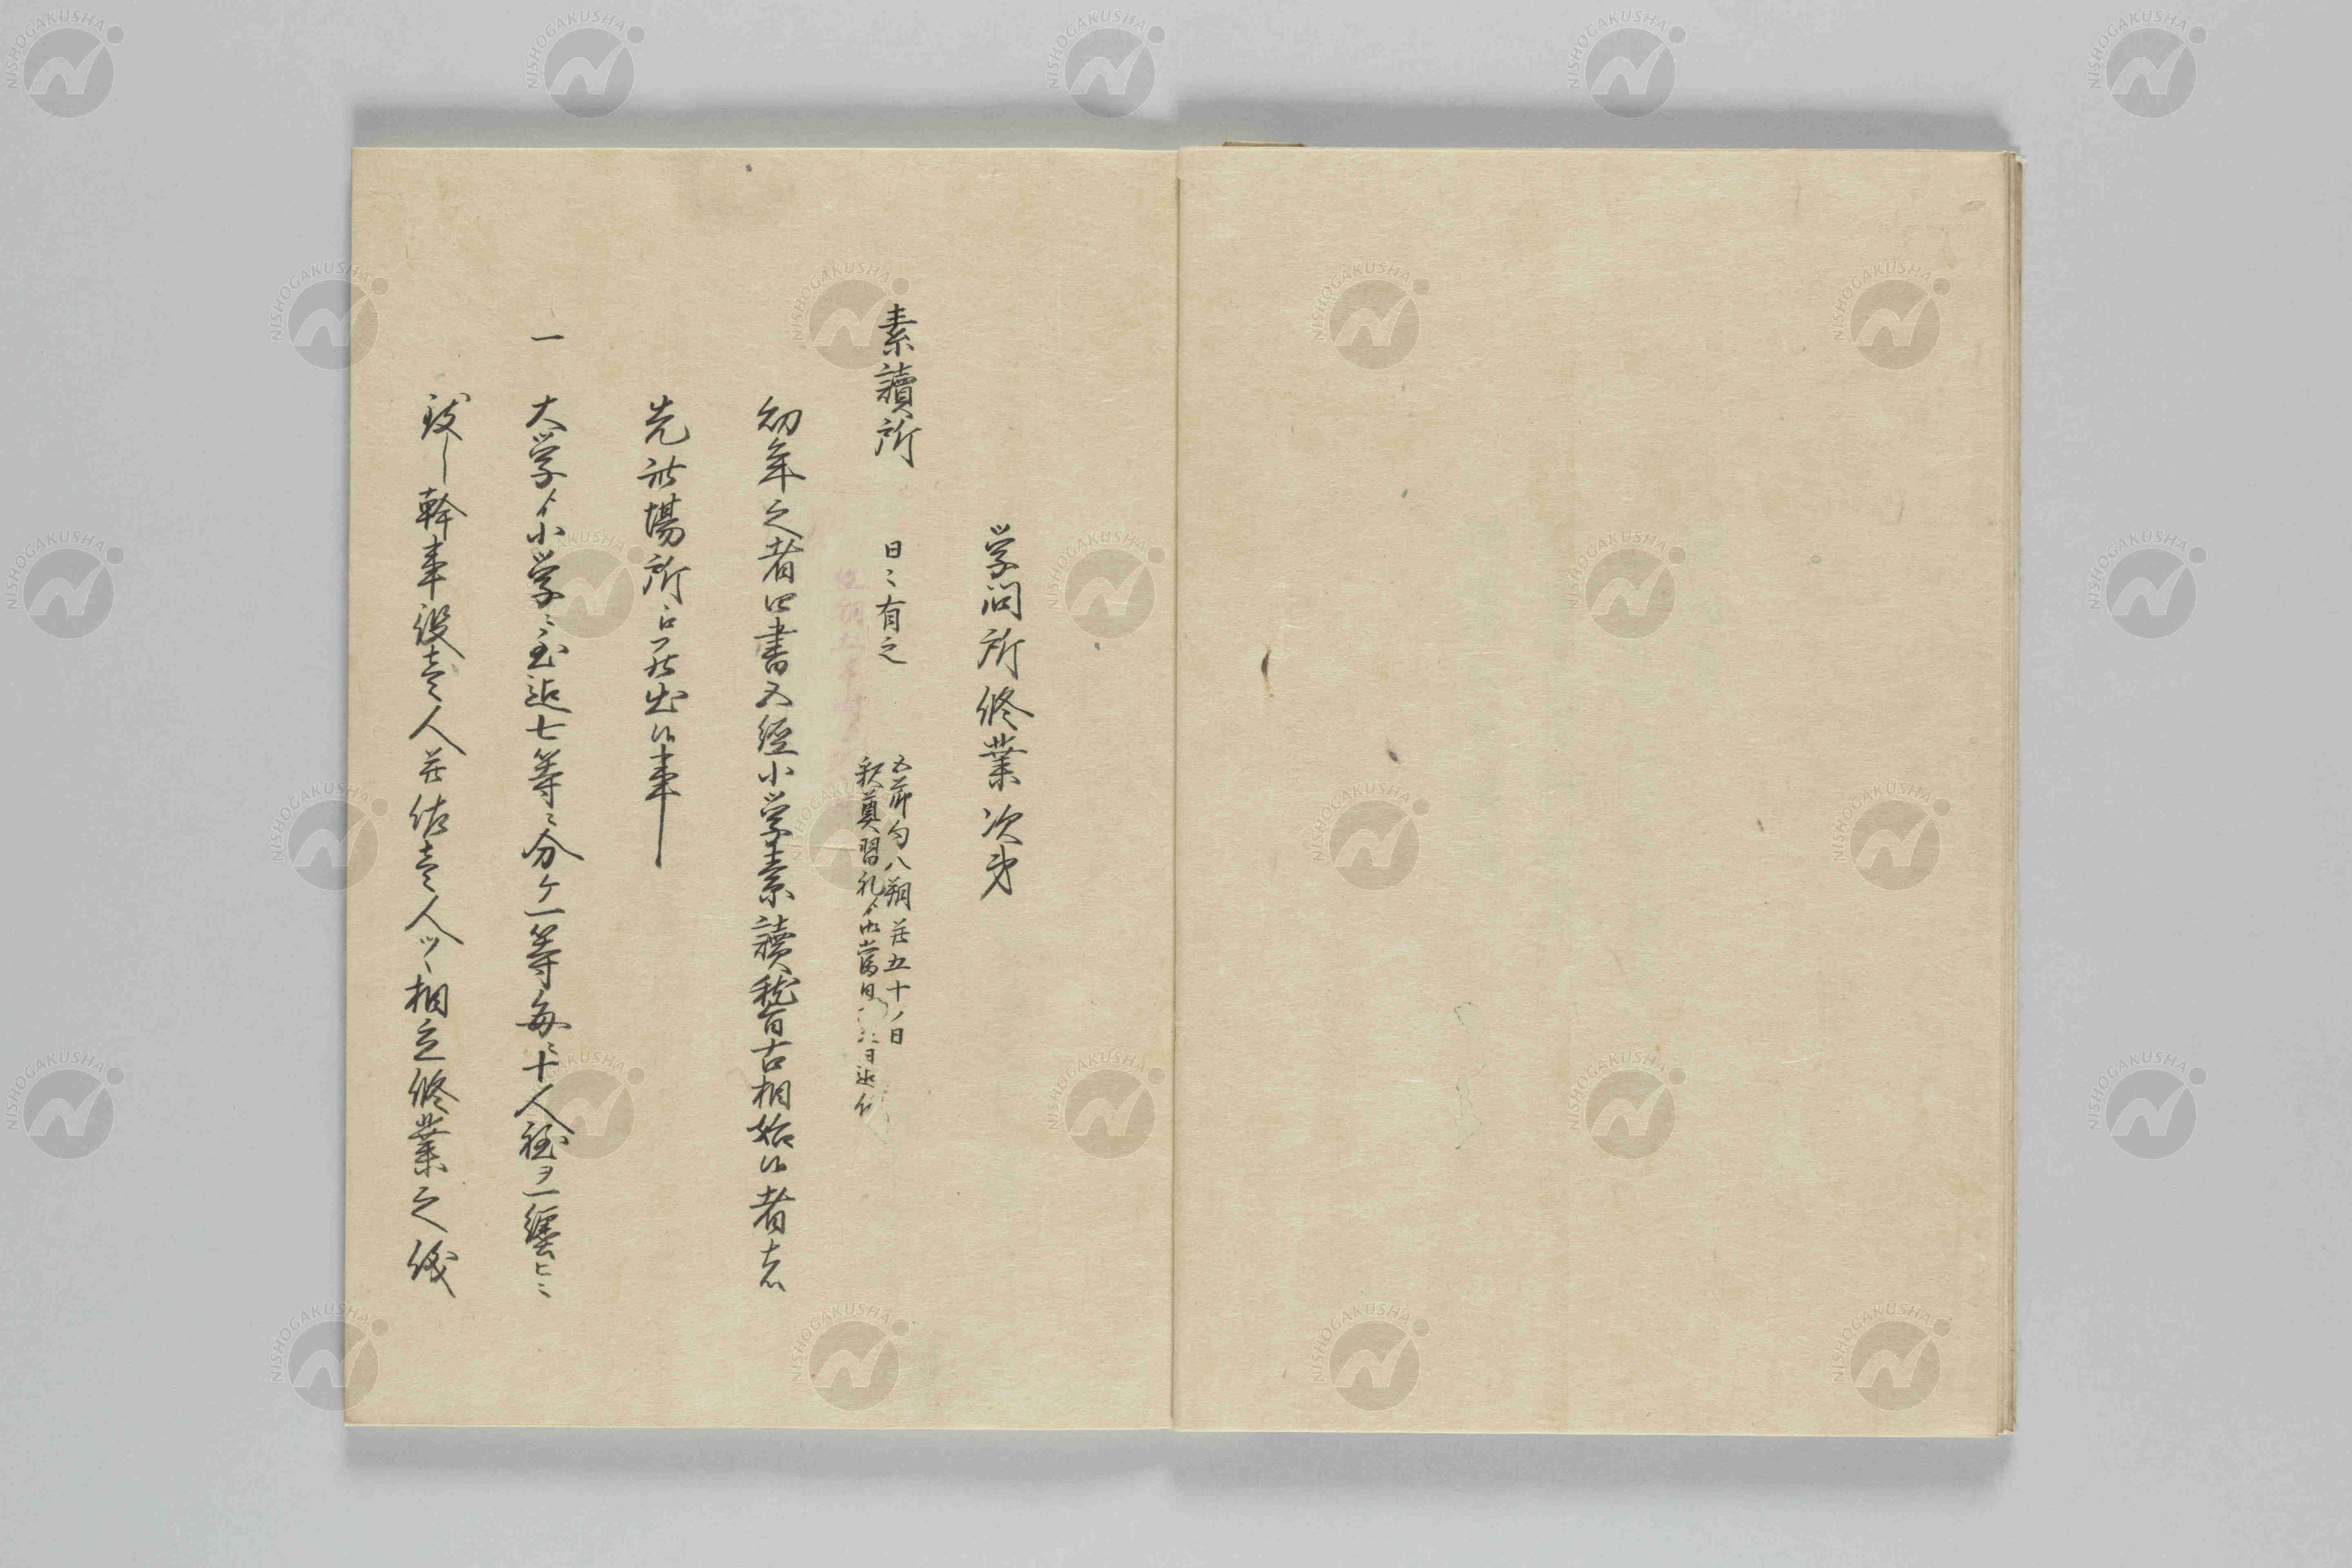 学問所修業次第
素讀所　日々有之
五節句八朔并五十ノ日
釈奠習礼ゟ
當日
日迄休
幼年之者四書五經小学素讀稽古相始候者ハ
先此場所江罷出候事
一　大学ゟ小学ニ至迄七等ニ分ケ一等毎ニ十人程ヲ一纏ヒニ
致し幹事役壱人并佐壱人ツヽ相立修業之儀
NISHOGAKUSHA